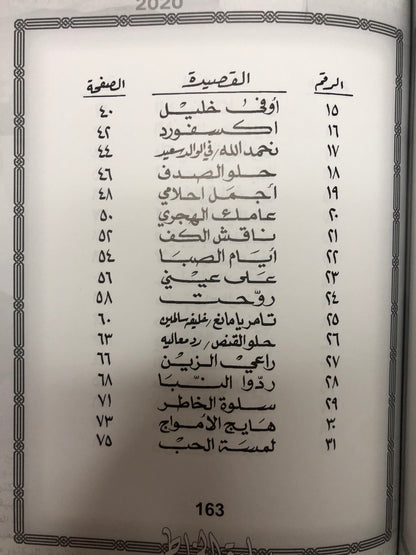 2020
الرقم القصيدة الصفحة
١٥ أوفى خليل ٤٠
١٦ اكسفورد ٤٢
١٧ نحمد الله/ في الوالد سعيد ٤٤
١٨ حلو الصدف ٤٦
١٩ أجمل احلامي ٤٨
٢٠ عاملك الهجري ٥٠
٢١ ناقش الكف ٥٢
٢٢ أيام الصبا ٥٤
٢٣ على عيني ٥٦
٢٤ روّحت ٥٨
٢٥ تامر يا مانع/ خليفه سالمين ٦٠
٢٦ حلو القنص/ رد معاليه ٦٣
٢٧ راعي الزين ٦٦
٢٨ ردّوا النّبا ٦٨
٢٩ سلوة الخاطر ٧١
٣٠ هايج الأمواج ٧٣
٣١ لمسة الحب ٧٥
163